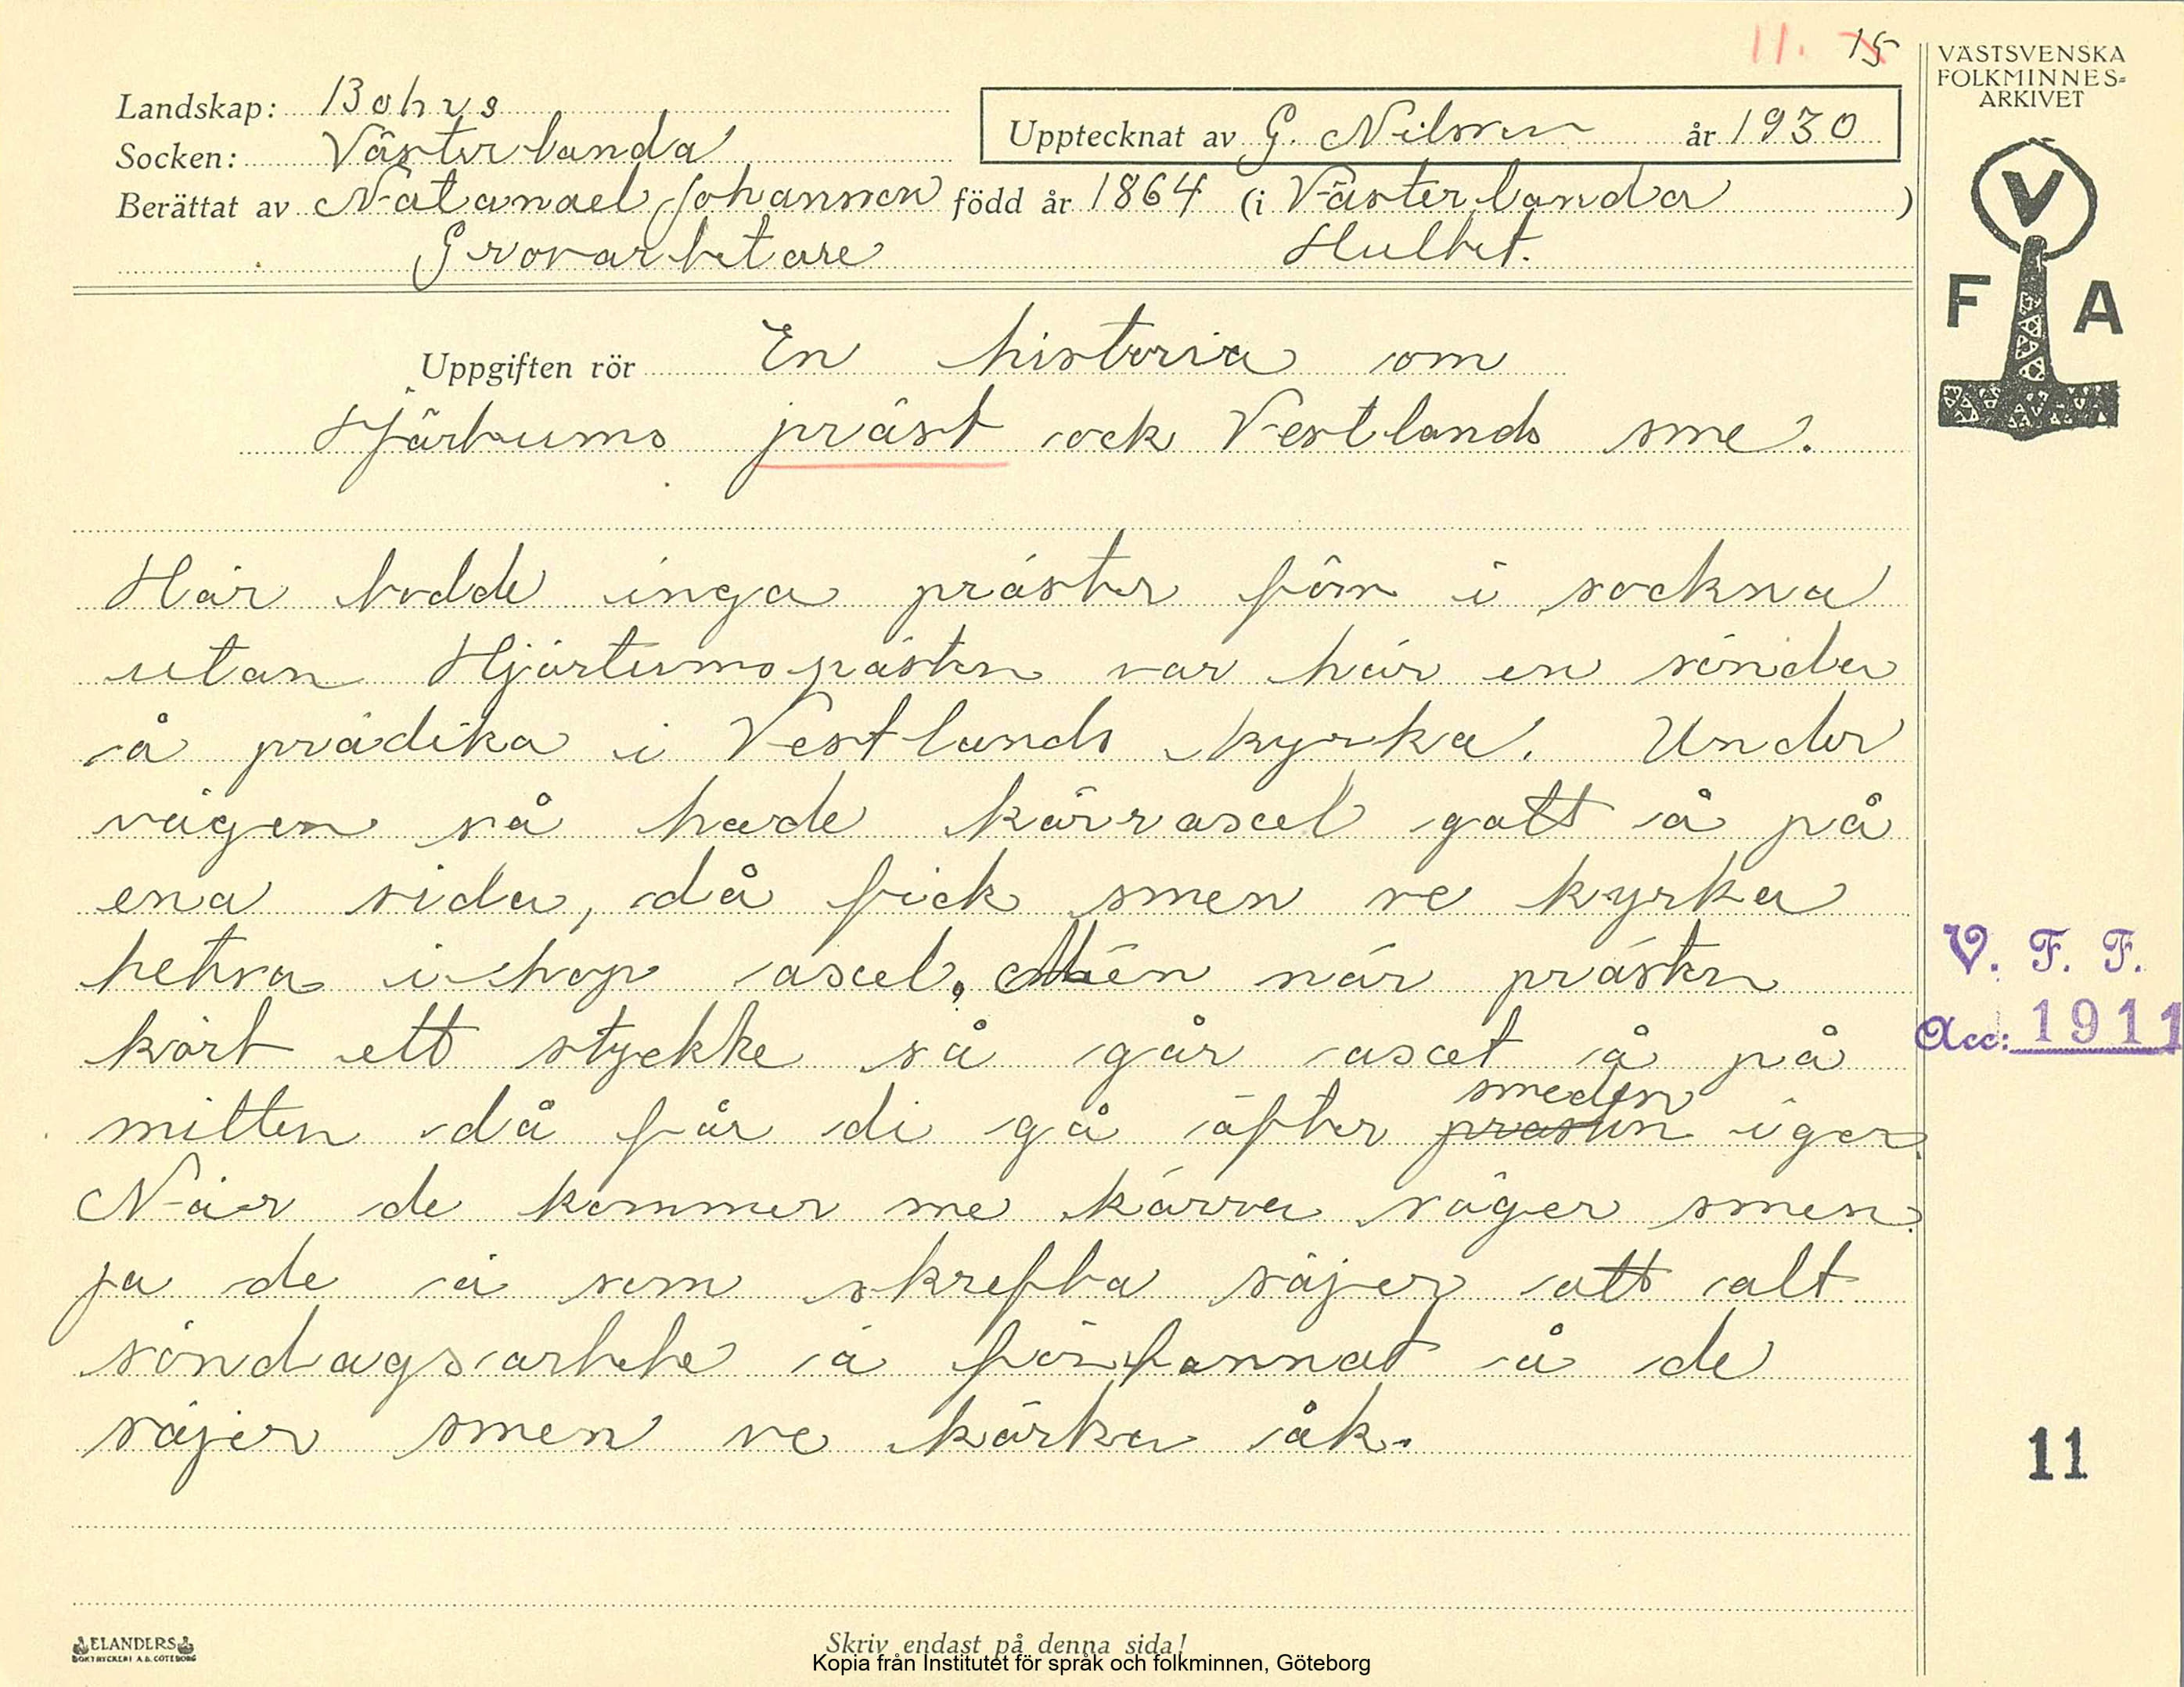 11. 15
VÄSTSVENSKA
FOLKMINNES=
ARKIVET
Landskap: Bohus
Upptecknat av G. Nilsson år 1930
Socken: Västerlanda
Berättat av Natanael Johansson född år 1864 (i Västerlanda )
Grovarbetare Hultet.
V
F A
Uppgiften rör En historia om
Hjärtums präst ock Vestlands sme.
Här bodde inga präster förr i sockna
utan Hjärtumspästen var här en sönda
å prädika i Vestlands kyrka. Under
vägen så hade kärraxel gatt å på
ena sida, då fick smen ve kyrka
hetsa ihop axel. Men när prästen
kört ett stycke så går axel å på
mitten då får di gå äfter smeden igen.
När de kommer me kärra säger smen
ja de ä som skrefta säjer att alt
söndagsarbete ä förbannat å de
säjer smen ve kärka åk.
V. F. F.
Acc: 1911
11
ELANDERS
BOKTRYCKERI A.B. GÖTEBORG
Skriv endast på denna sida!
Kopia från Institutet för språk och folkminnen, Göteborg